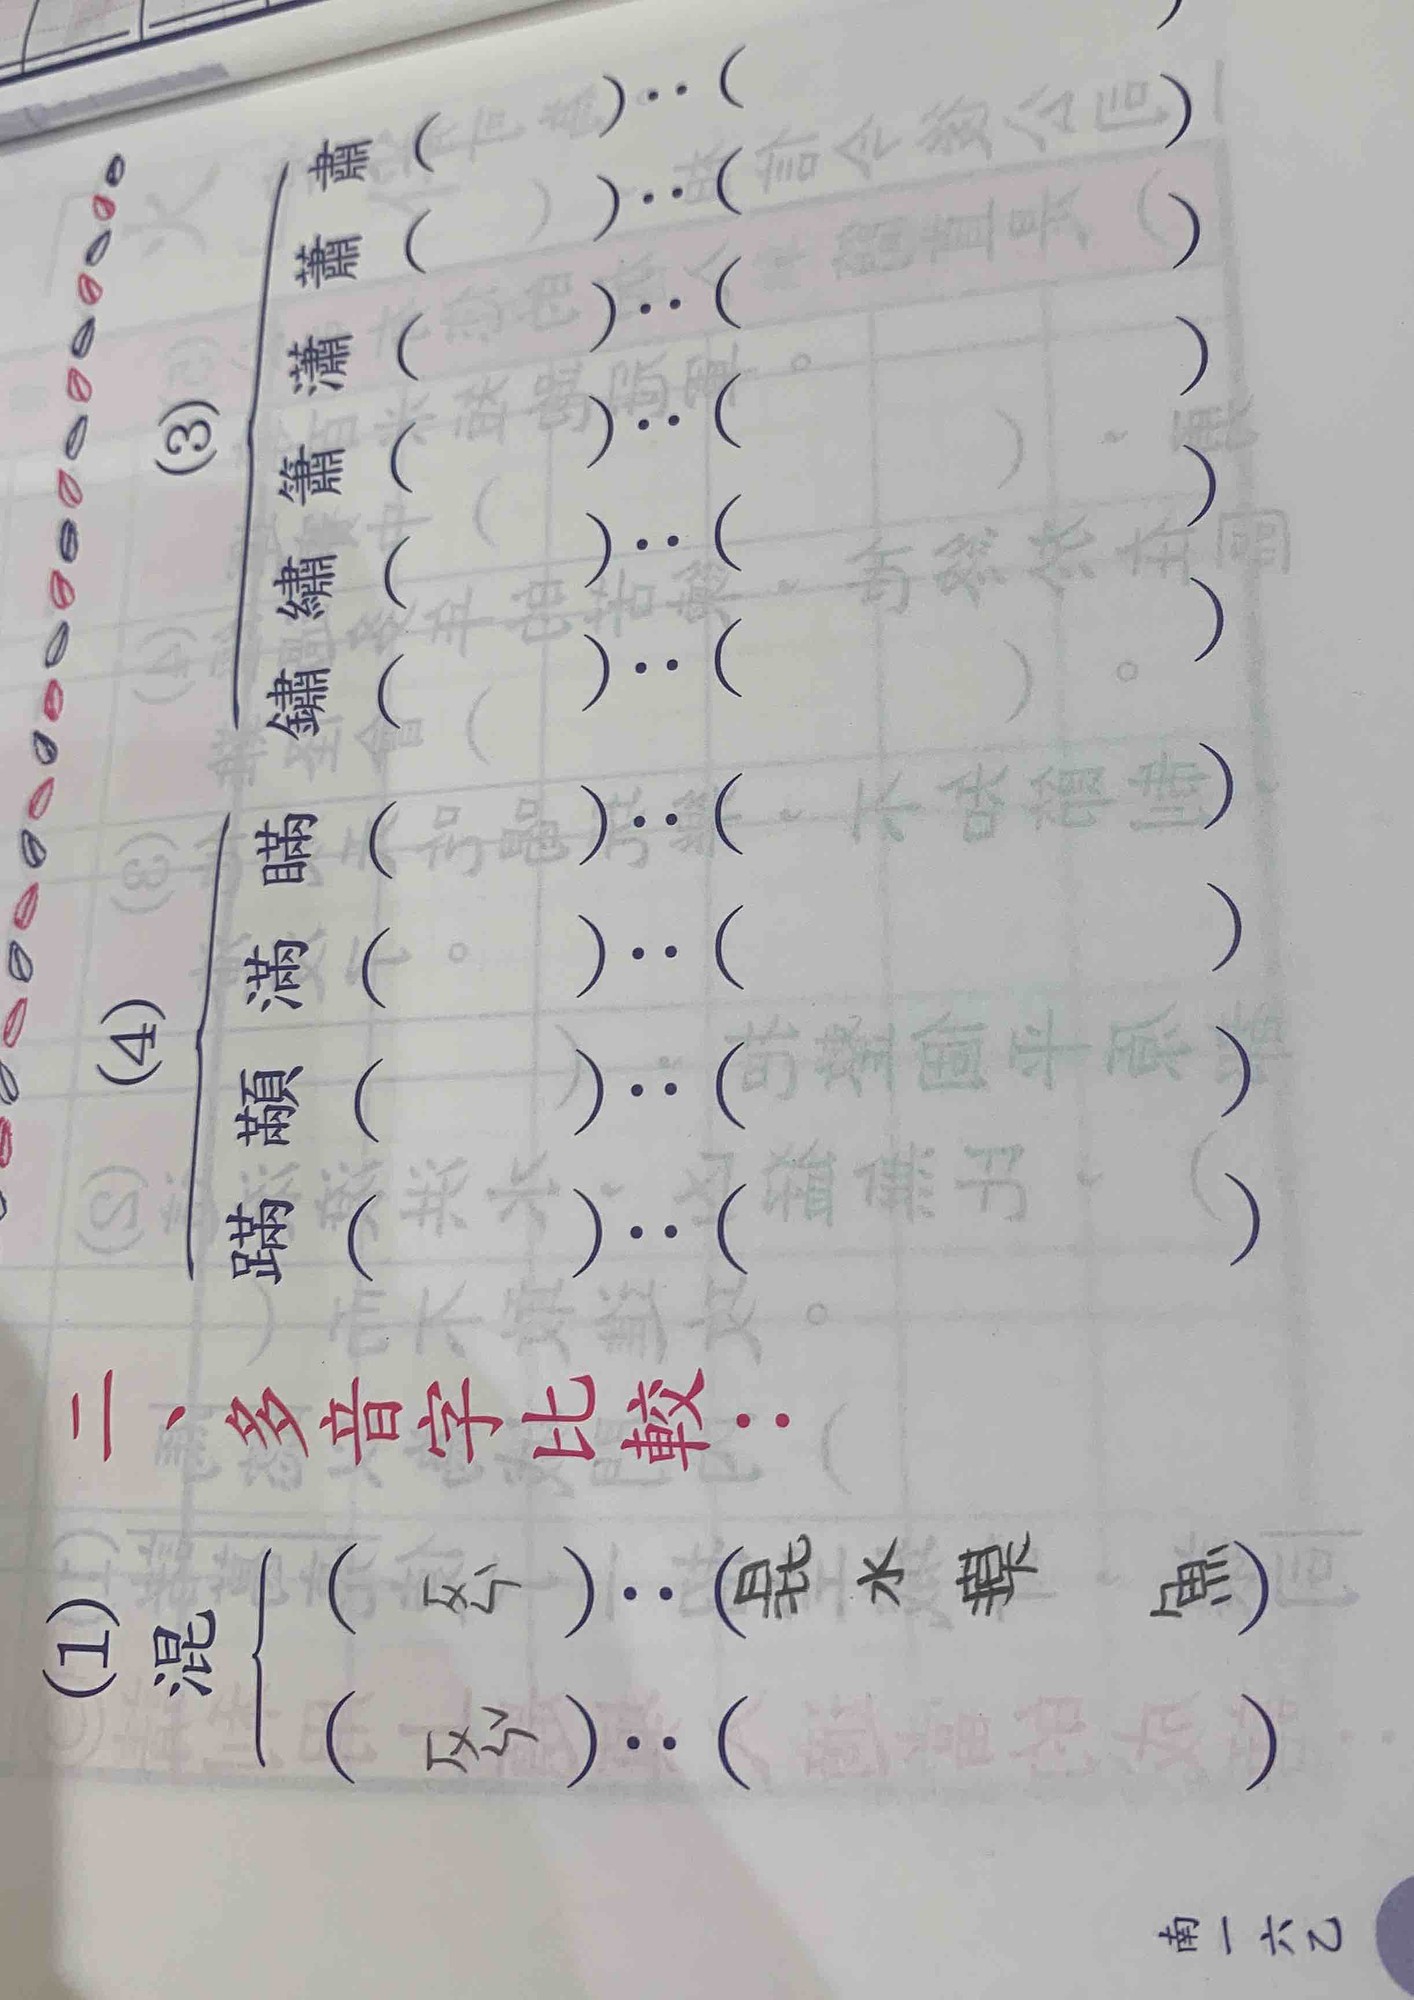 (3)
肅( ):( )
蕭( ):( )
瀟( ):( )
簫( ):( )
繡( ):( )
鏽( ):( )
(4)
瞞( ):( )
滿( ):( )
顢( ):( )
蹣( ):( )
二、多音字比較:
(1)
混
( ):(混水摸魚)
( ):( )
南一六乙